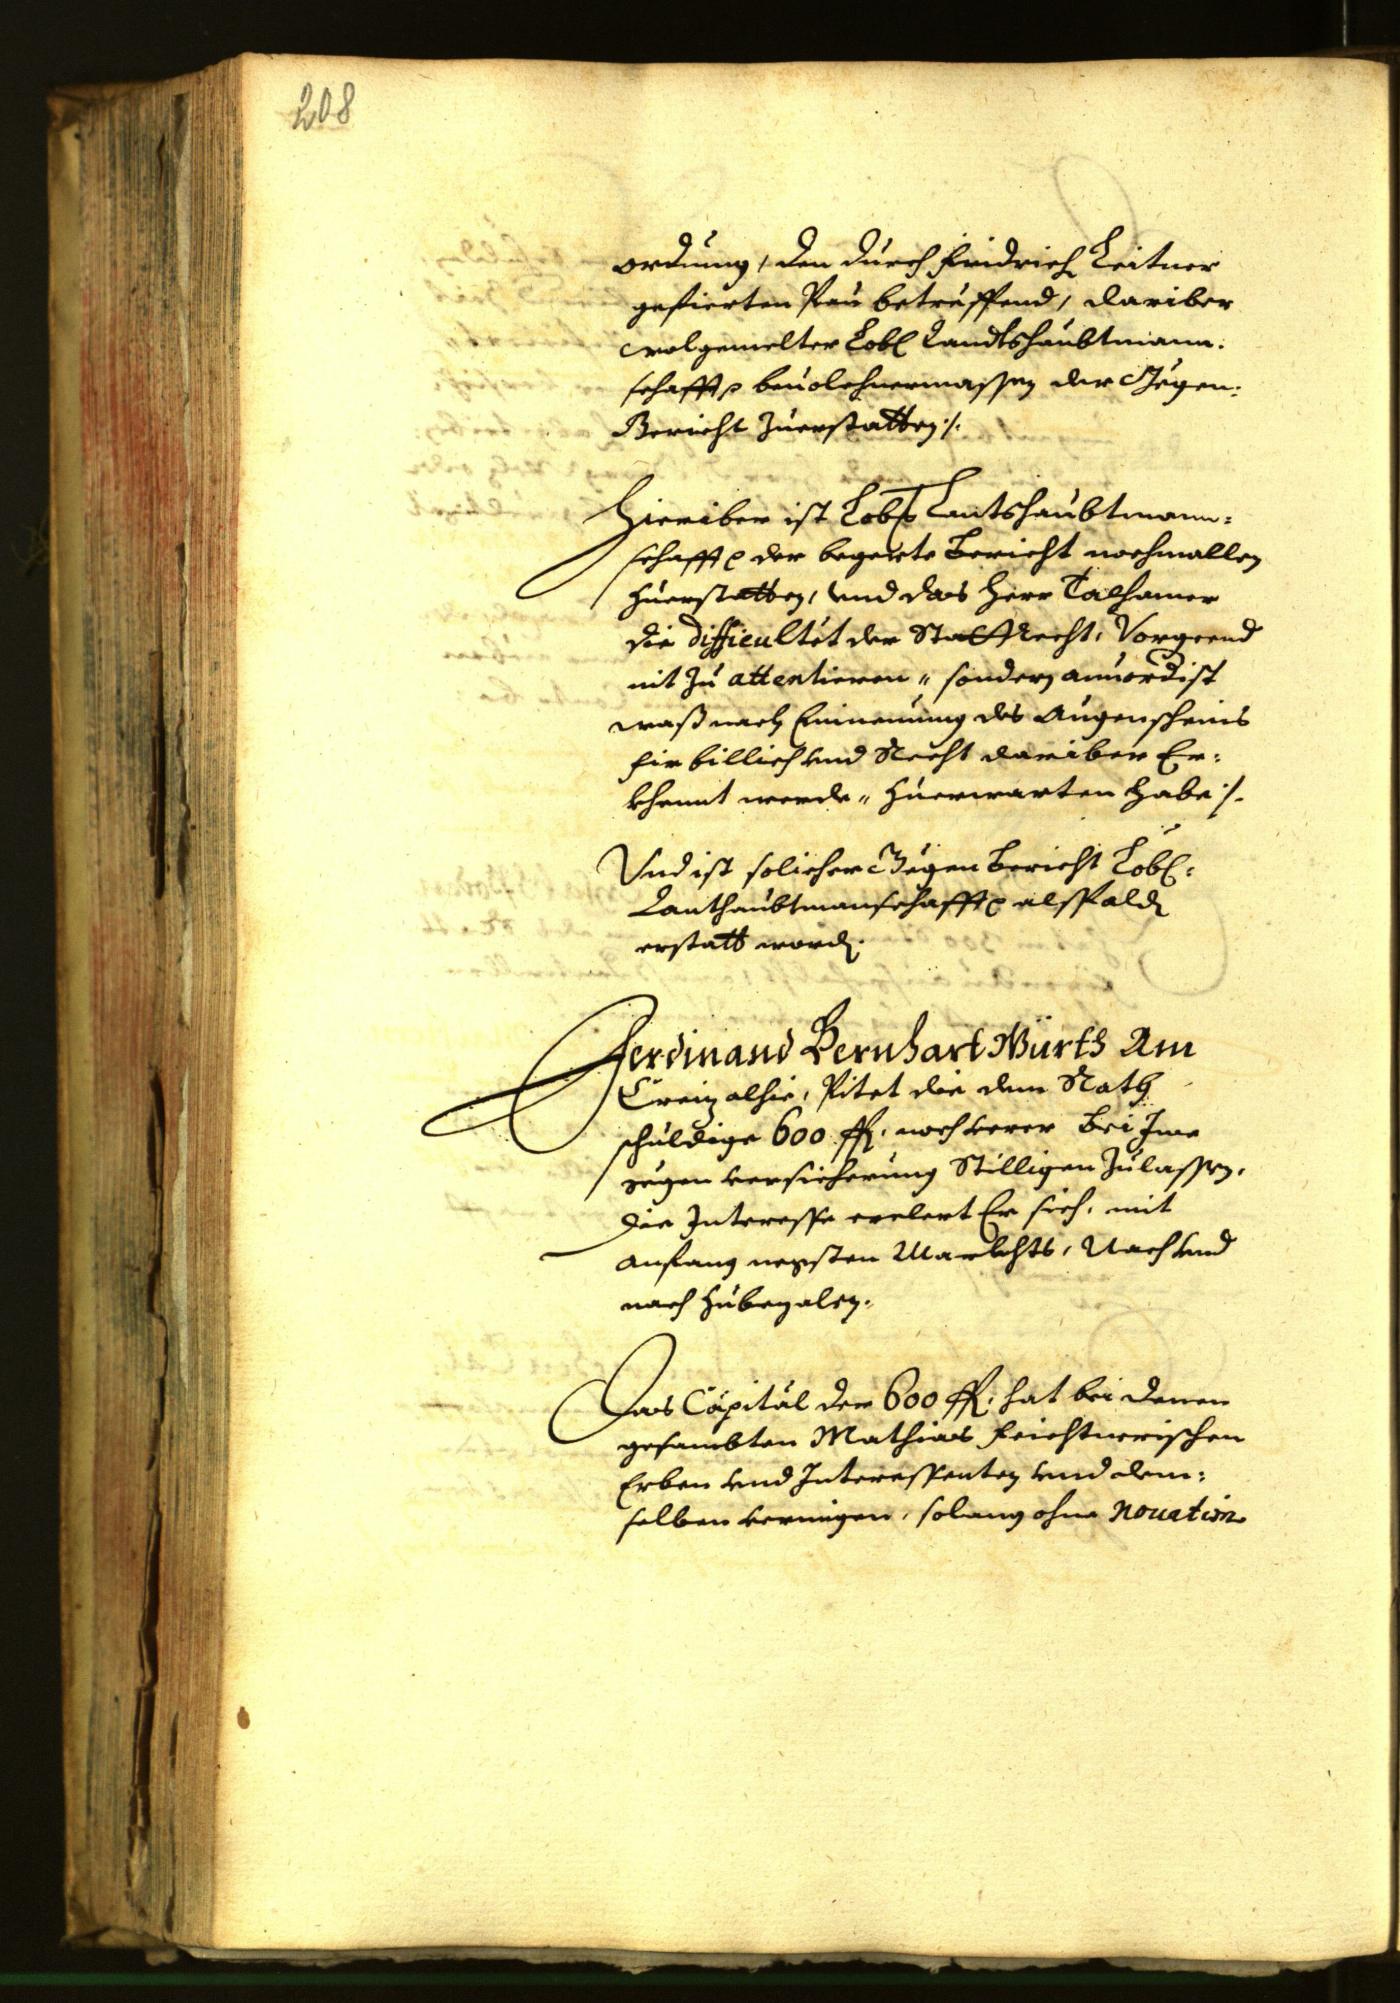 208
ordnung, den durch Fridrich Leitner
gefierten Pau betreffend, dariber
wolgemelter Lobl Landtshaubtmann:
schafft beuolchnermassen der Gegen:
Bericht Zuerstatten ⁒
Hieriber ist Lobl Lantshaubtmann:
schafft der begerte Bericht nochmallen
Zuerstatten, und das Herr Talhamer
die difficultet der Statt Recht, Vorgeend
nit Zu attentieren, sondern anuordist
waß nach Einnemung des Augenscheins
fir billich und Recht dariber Er:
khennt werde, Zuerwarten habe ⁒
Und ist solicher Gegen Bericht Lobl:
Lanthaubtmanschafft alspald
erstatt word.
Ferdinand Bernhart Würth Am
Creiz alhie, Pitet die dem Rath
schuldige 600 fl. noch verer Bei Ime
gegen versicherung Stilligen Zulassen,
die Interesse erclert Er sich, mit
anfang negsten Markhts, Nach und
nach Zubezalen.
Das Capital der 600 fl. hat bei denen
gesambten Mathias Feichtnerischen
Erben und Interessenten und dem:
selben vermigen, solang ohne Nouation